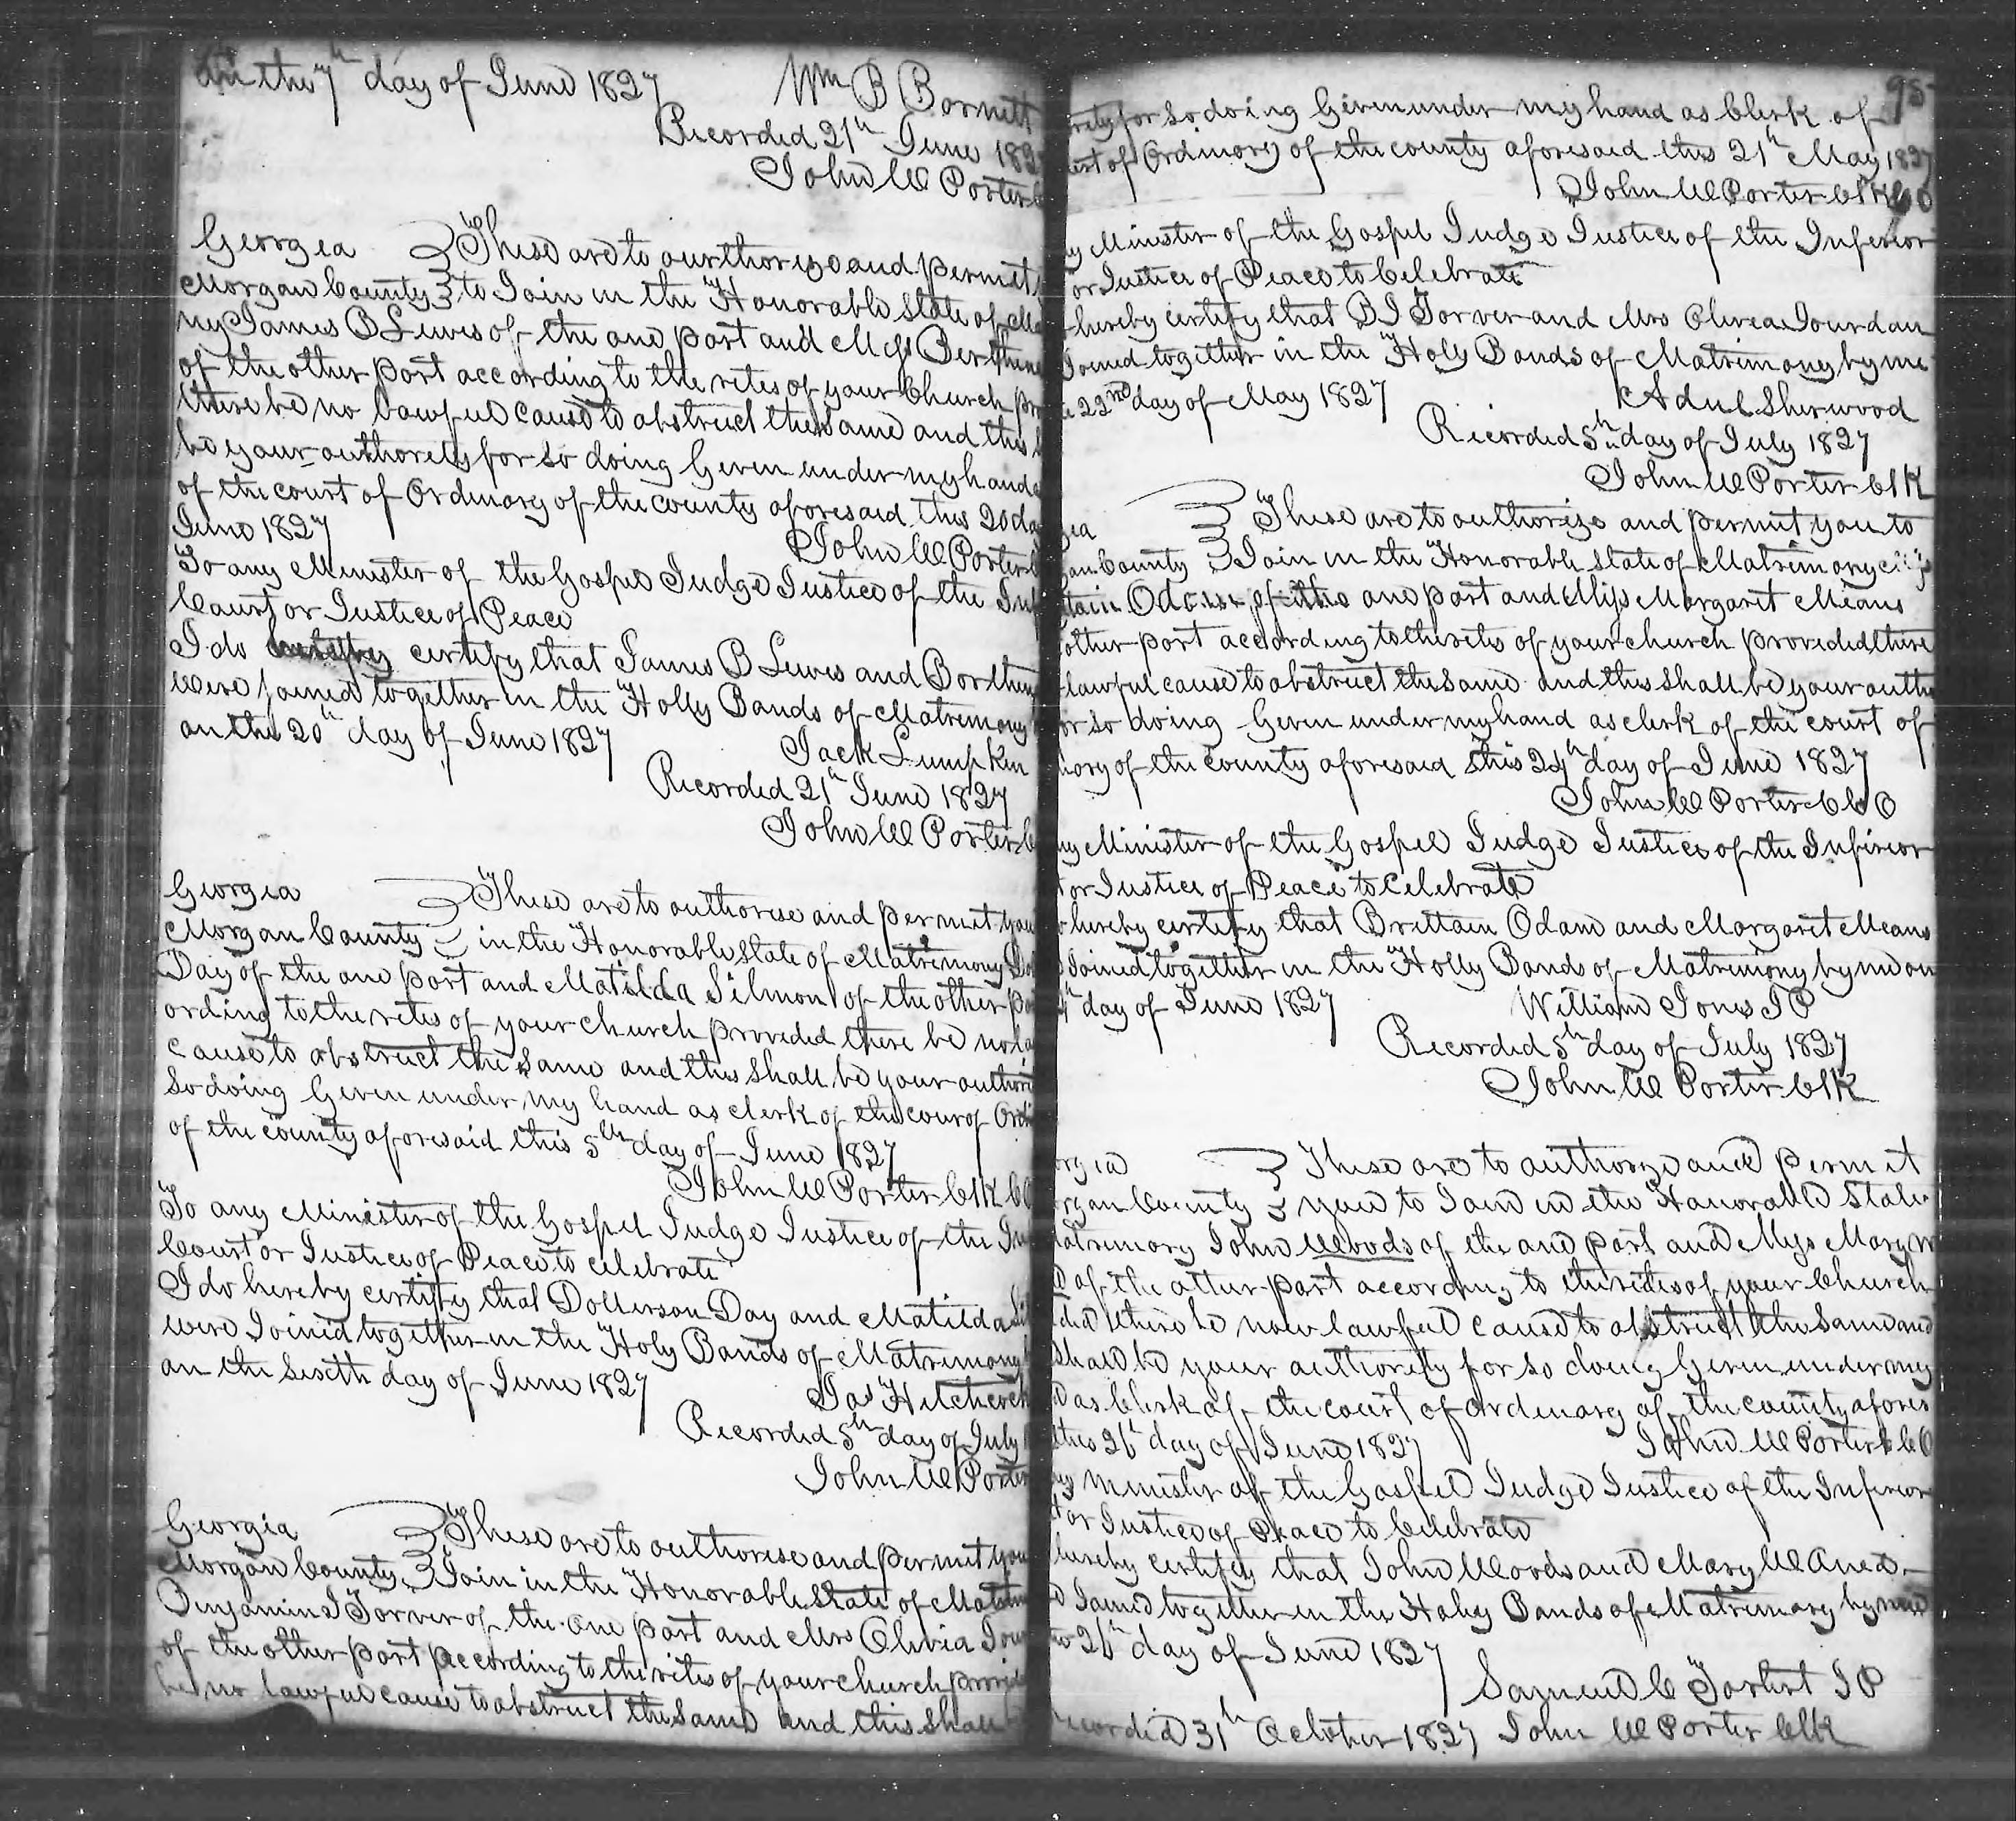 on the 7th day of June 1827
Wm B Barnett
Recorded 21th June 182
John W Porter
Georgia These are to aurthorize and permit
Morgan County to Join in the Honorable State of Ma
ny James B Lewis of the one part and Miss Berthene
of the other part according to the rites of your Church pr
there be no lawful cause to obstruct the same and this
be your authority for so doing Given under my hand
of the court of Ordinary of the county aforesaid this 20 da
June 1827
John W Porter
To any Minister of the Gospel Judge Justice of the Inf
Court or Justice of Peace
I do certify that James B Lewis and Berthen
were joined together in the Holly Bands of Matremony
on the 20th day of June 1827
Jack Lumpkin
Recorded 21th June 1827
John W Porter
Georgia These are to authorise and permit you
Morgan County in the Honorable State of Matrimony Do
Day of the one part and Matilda Silmon of the other pa
ording to the rites of your church provided there be no la
cause to obstruct the same and this shall be your authori
So doing Given under my hand as clerk of the cour of Ordi
of the county aforesaid this 5th day of June 1827
John W Porter Clk CO
To any Minister of the Gospel Judge Justice of the In
Court or Justice of Peace to celebrate
I do hereby certify that Dollerson Day and Matilda Sil
were Joined together in the Holy Bands of Matremony
on the Sixth day of June 1827
Jas Hitcherch
Recorded 5th day of July
John W Porter
Georgia These are to authorise and permit you
Morgan County Join in the Honorable State of Matrim
Benjamin J Tarver of the one part and Mrs Olivia Jour
of the other part according to the rites of your church provide
be no lawful cause to obstruct the same and this shall
95
rety for so doing Given under my hand as Clerk of
urt of Ordinary of the county aforesaid this 21th May 1827
John W Porter Clk CO
y Minister of the Gospel Judge Justice of the Inferior
or Justice of Peace to Celebrate
hereby certify that B J Tarver and Mrs Olivea Jourdan
Joined together in the Holy Bands of Matrimony by me
22nd day of May 1827
Adiel Sherwood
Recorded 5th day of July 1827
John W Porter Clk
gia These are to authorize and permit you to
gan County Join in the Honorable State of Matrimony
ttain Odam of the one part and Miss Margaret Means
other part according to the rites of your church provided there
lawful cause to obstruct the same and this shall be your autho
or so doing Given under my hand as clerk of the court of
nary of the county aforesaid this 24th day of June 1827
John W Porter C C O
ny Minister of the Gospel Judge Justice of the Inferior
t or Justice of Peace to Celebrate
hereby certify that Brittain Odam and Margaret Means
Joined together in the Holly Bands of Matremony by me on
day of June 1827
William Jones J P
Recorded 5th day of July 1827
John W Porter Clk
orgia These are to authorize and permit
rgan County you to Join in the Honorable State
atrimony John Woods of the one part and Miss Mary W
of the other part according to the rites of your Church
ded there be now lawful cause to obstruct the same and
shall be your authority for so doing Given under my
as Clerk of the court of ordinary of the county afores
this 26th day of June 1827
John W Porter C C O
ny Minister of the Gospel Judge Justice of the Inferior
t or Justice of Peace to Celebrate
hereby certify that John Woods and Mary W
Joined together in the Holy Bands of Matrimony by me
26th day of June 1827
Samuel C J P
ecorded 31th October 1827 John W Porter Clk